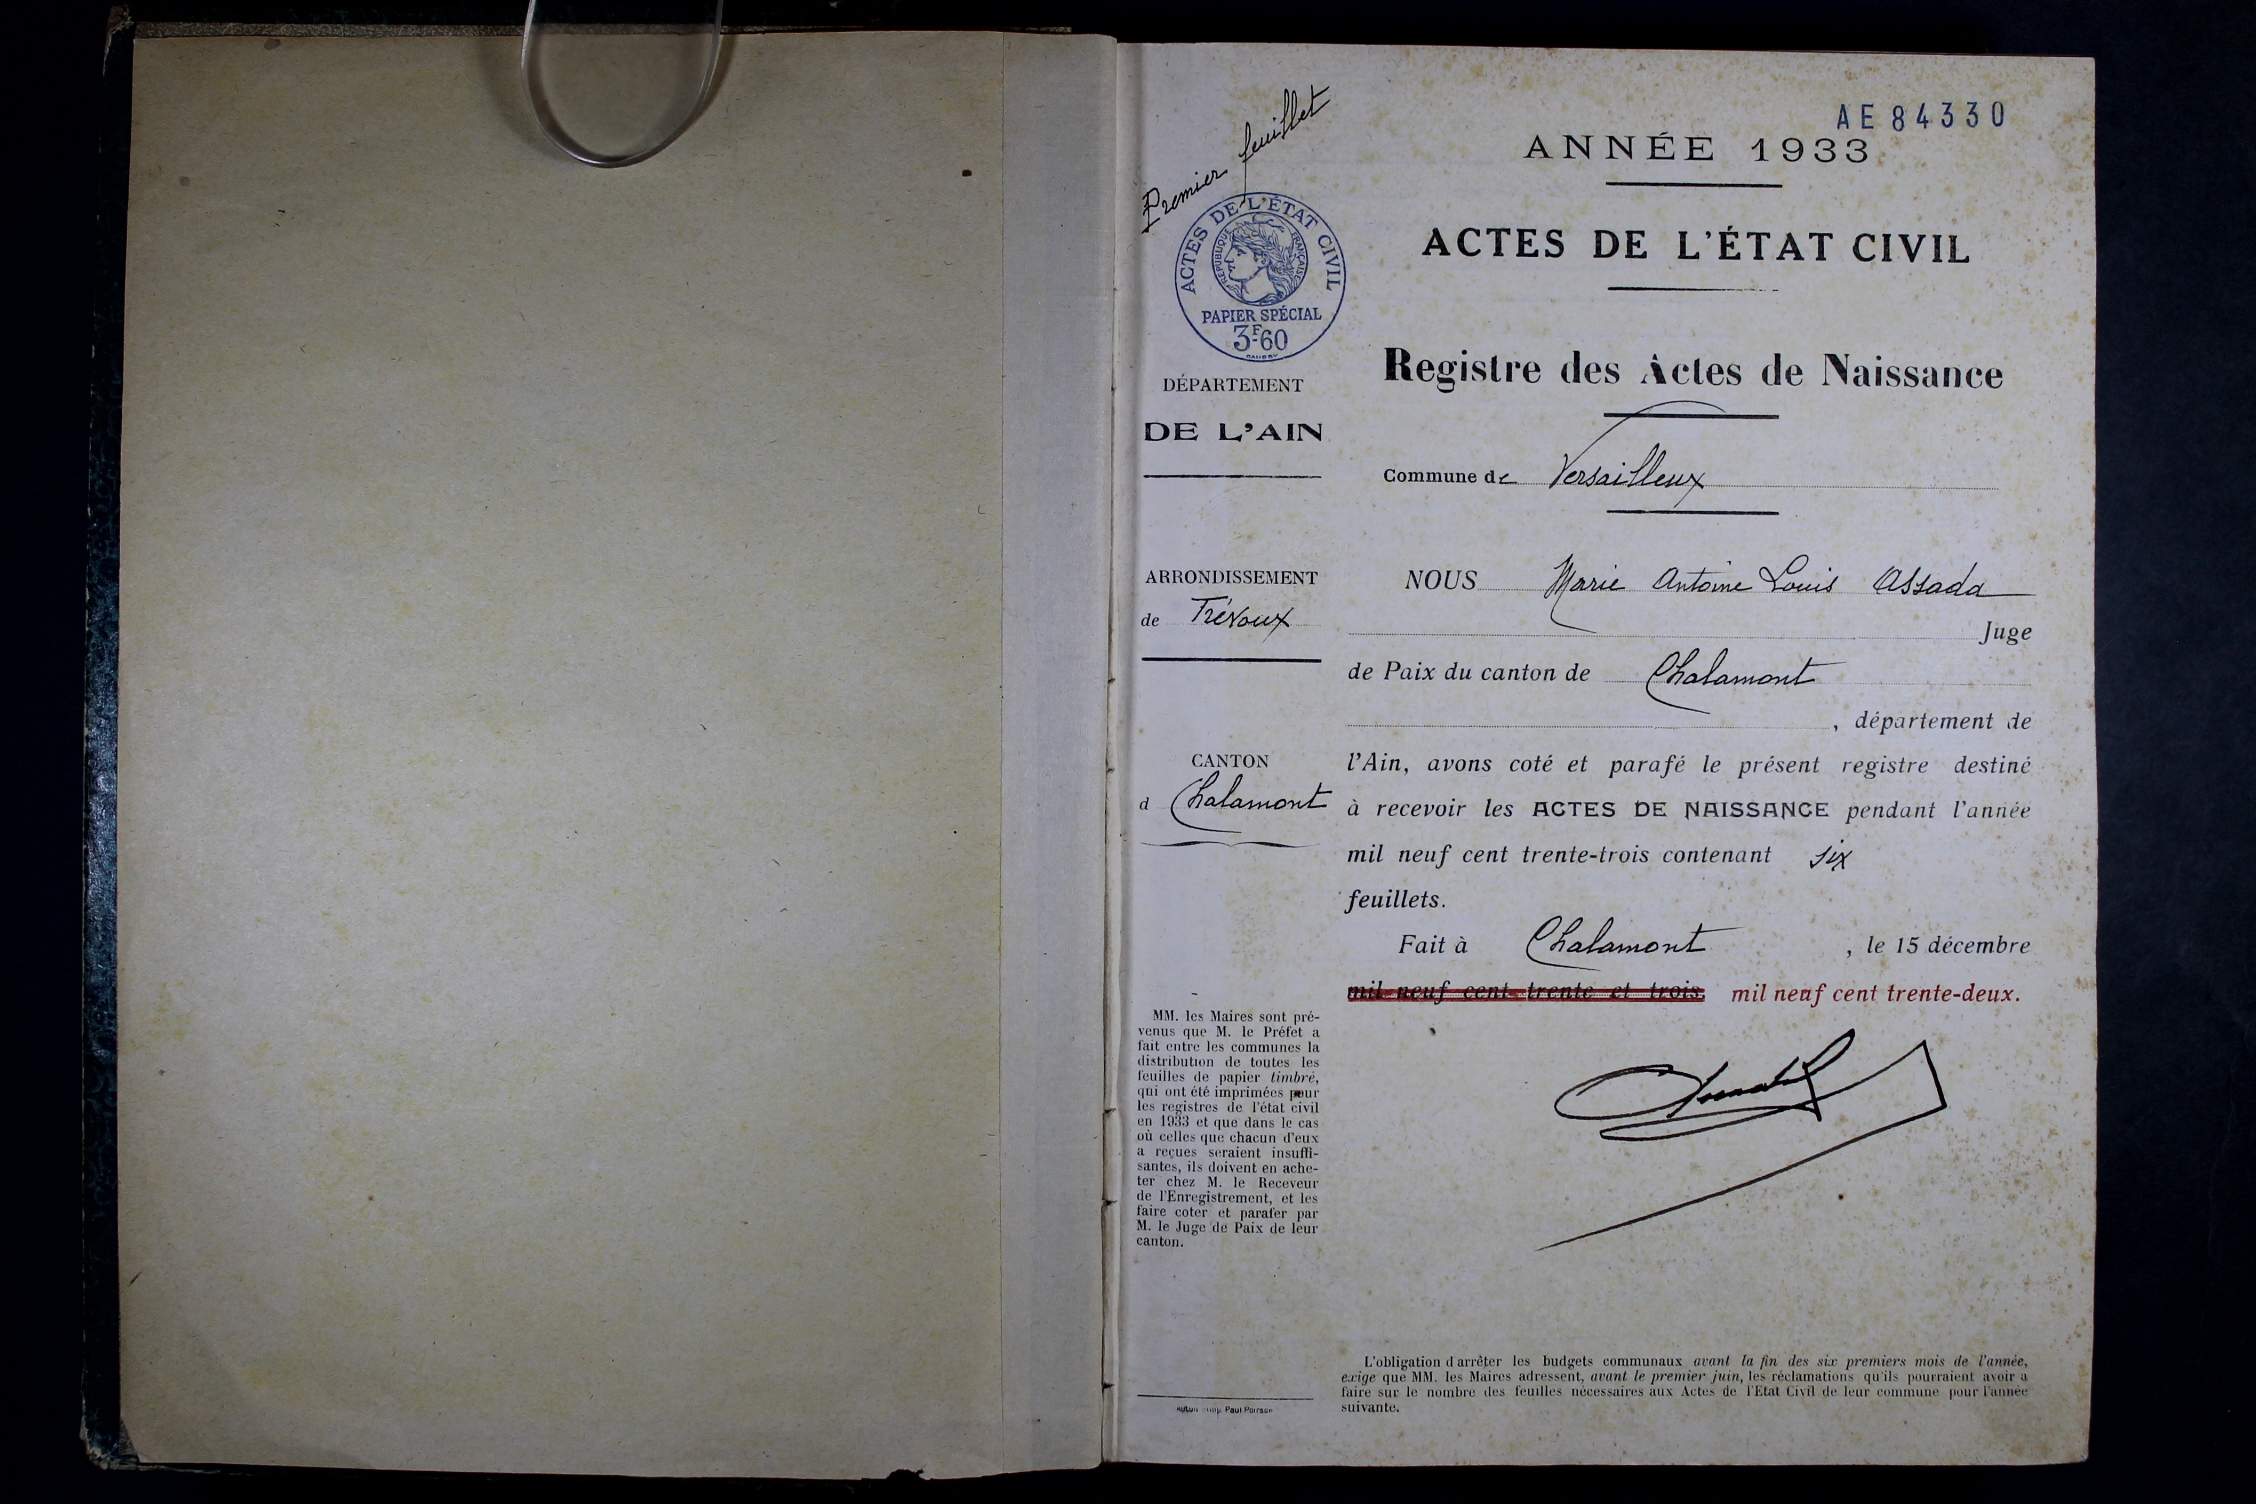 Premier feuillet
AE 84330
ANNÉE 1933
ACTES DE L'ÉTAT CIVIL
RÉPUBLIQUE FRANÇAISE
PAPIER SPÉCIAL
3F60
DÉPARTEMENT
DE L'AIN
ARRONDISSEMENT
de Trévoux
CANTON
d Chalamont
MM. les Maires sont pré-
venus que M. le Préfet a
fait entre les communes la
distribution de toutes les
feuilles de papier timbré,
qui ont été imprimées pour
les registres de l'état civil
en 1933 et que dans le cas
où celles que chacun d'eux
a reçues seraient insuffi-
santes, ils doivent en ache-
ter chez M. le Receveur
de l'Enregistrement, et les
faire coter et parafer par
M. le Juge de Paix de leur
canton.
Paul Poirson
ACTES DE L'ÉTAT CIVIL
Registre des Actes de Naissance
Commune de Versailleux
NOUS Marie Antoine Louis Assada
Juge
de Paix du canton de Chalamont
, département de
l'Ain, avons coté et parafé le présent registre destiné
à recevoir les ACTES DE NAISSANCE pendant l'année
mil neuf cent trente-trois contenant six
feuillets.
Fait à Chalamont, le 15 décembre
mil neuf cent trente et trois. mil neuf cent trente-deux.
L'obligation d'arrêter les budgets communaux avant la fin des six premiers mois de l'année,
exige que MM. les Maires adressent, avant le premier juin, les réclamations qu'ils pourraient avoir à
faire sur le nombre des feuilles nécessaires aux Actes de l'Etat Civil de leur commune pour l'année
suivante.